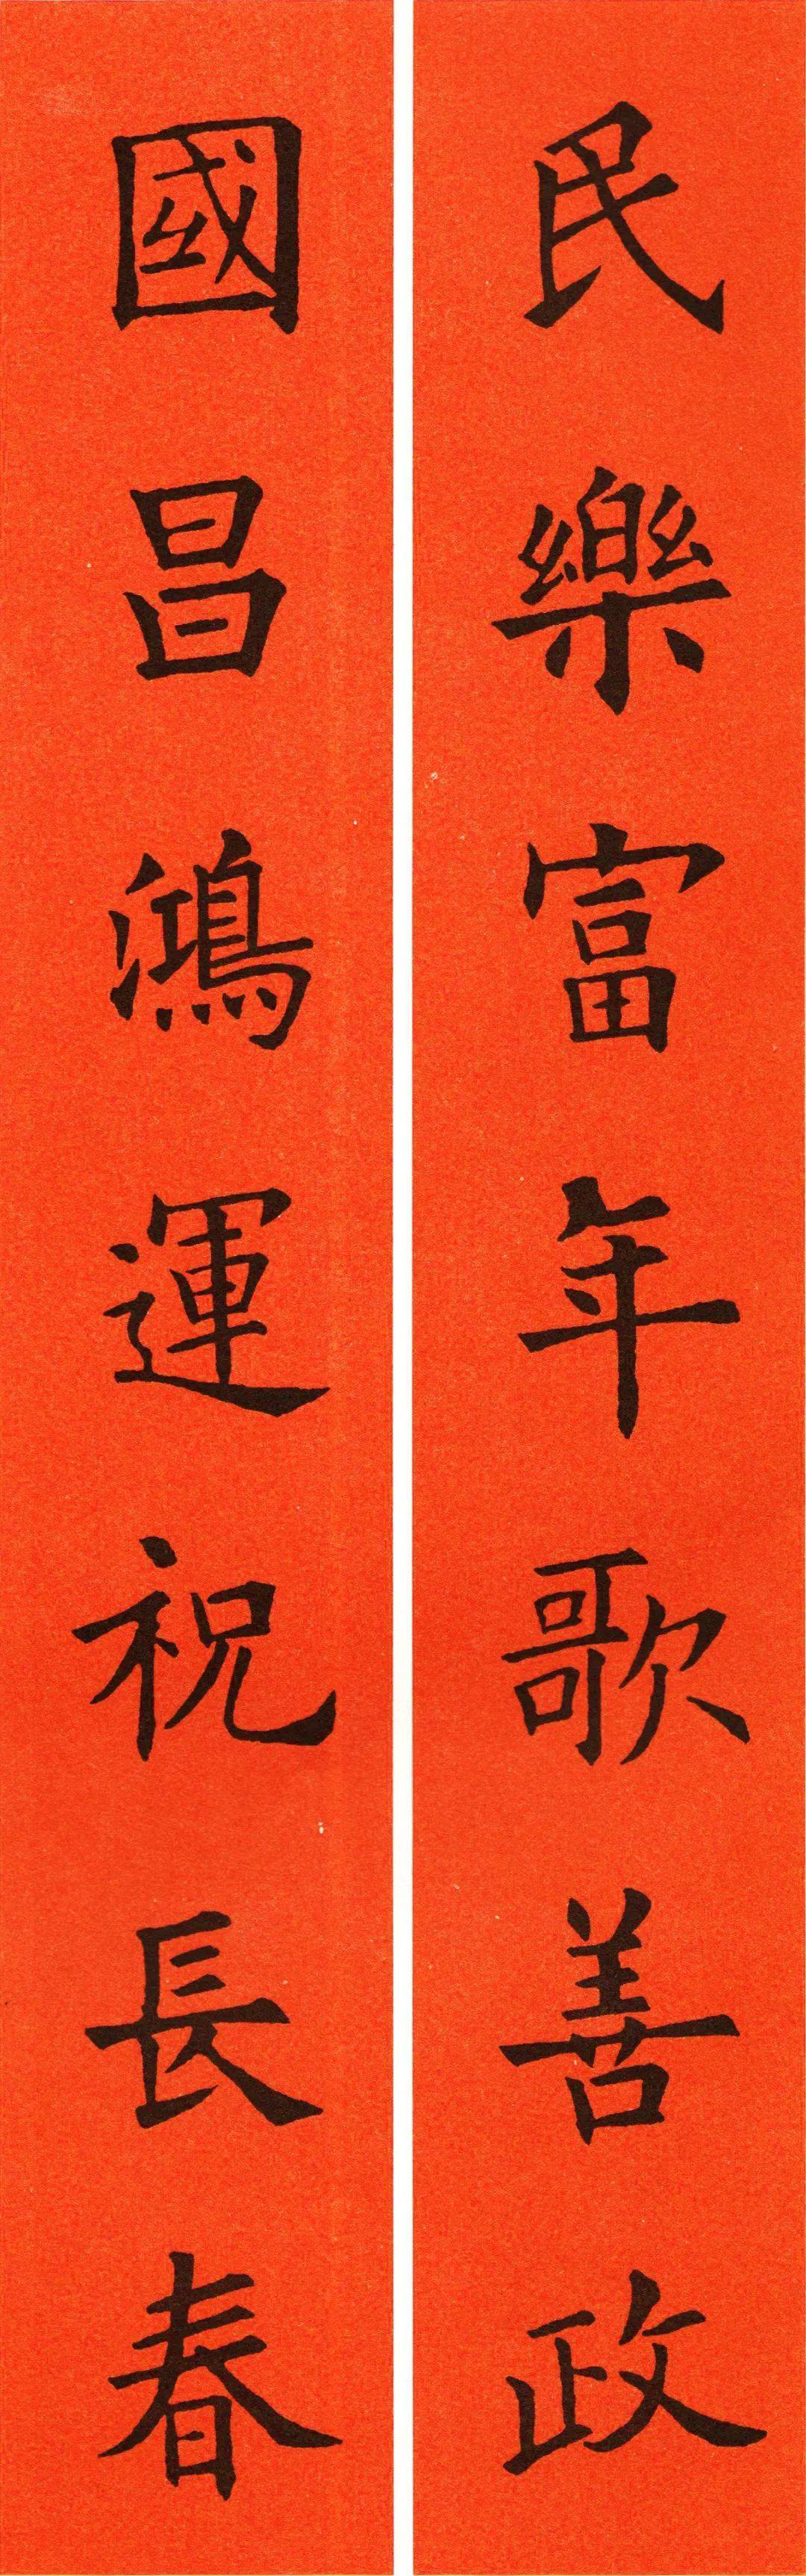 民樂富年歌善政
國昌鴻運祝長春